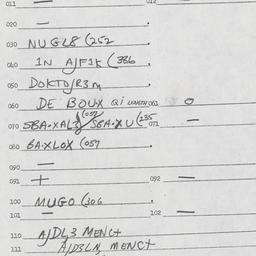 011 — 012
020 —
030 NUGL8 (252
040 IN A/F1K (386
050 DOKTO/R3M
060 DE BOUX Qi 061 O
070 SBA·XAL3/ (057 SBA·XU (235 071 —
080 BA·XLOX (057
090 —
091 + 092 —
100 MUGO (306
101 — 102 —
110 A/DL3 MENC+
111 A/D3LN MENC+